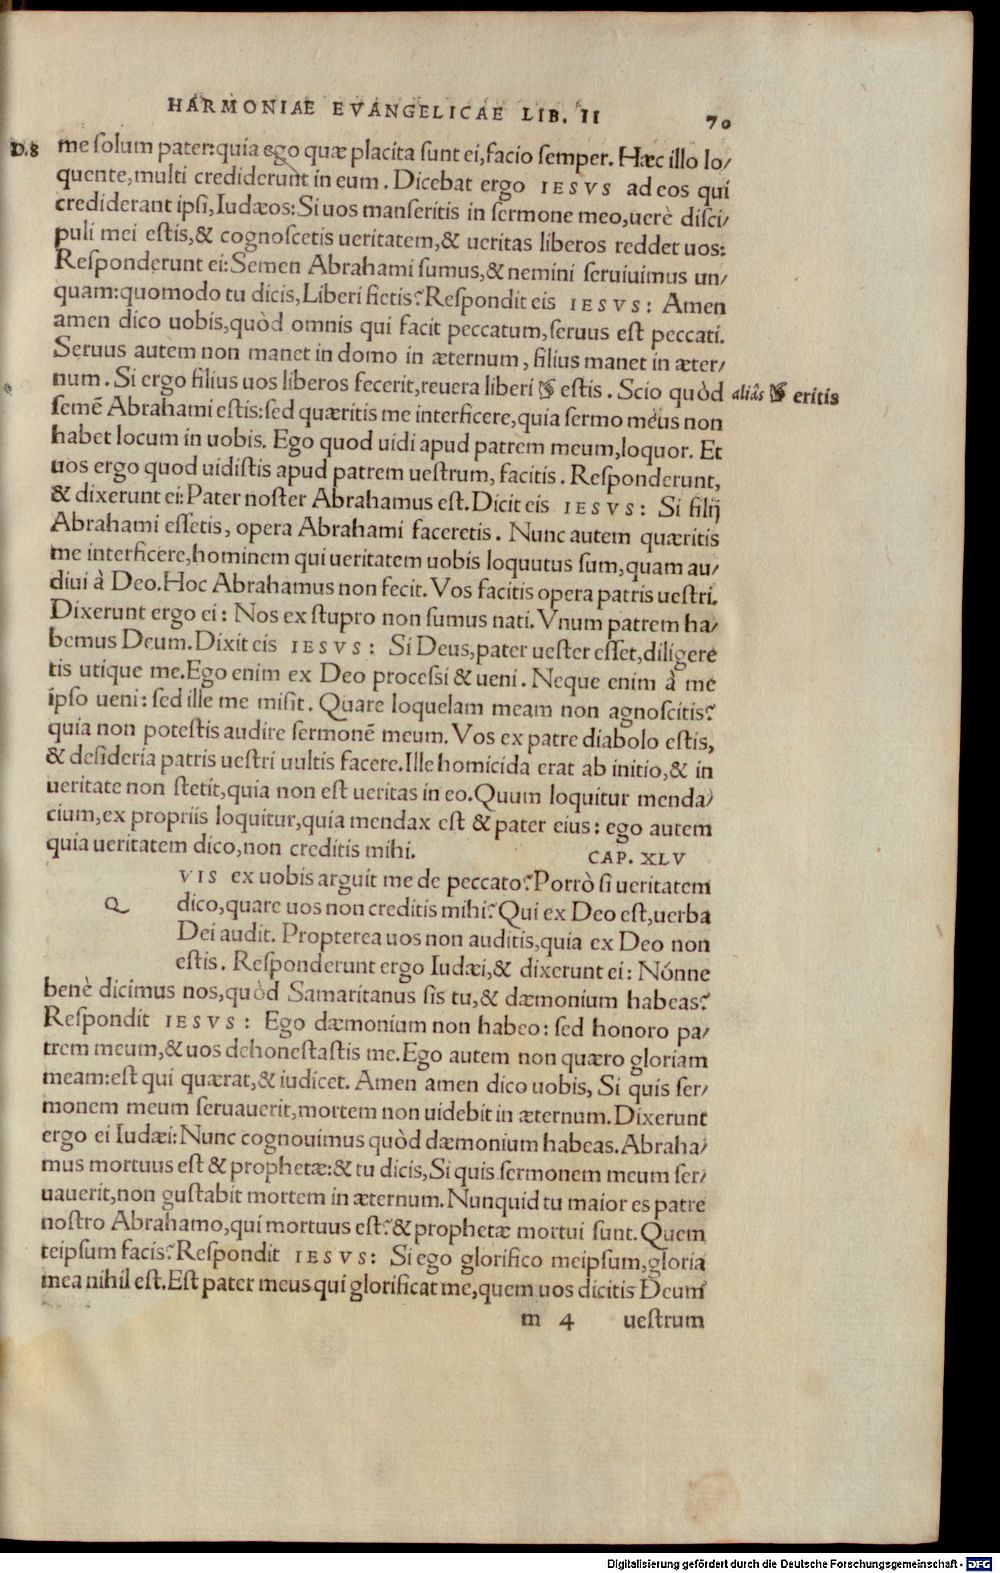 HARMONIAE EVANGELICAE LIB. II 70
D.8 me ſolum pater:quia ego quæ placita ſunt ei,facio ſemper. Hæc illo lo/
quente,multi crediderunt in eum. Dicebat ergo IESVS ad eos qui
crediderant ipſi,Iudæos:Si uos manſeritis in ſermone meo,uerè diſci/
puli mei eſtis,& cognoſcetis ueritatem,& ueritas liberos reddet uos:
Reſponderunt ei:Semen Abrahami ſumus,& nemini ſeruiuimus un/
quam:quomodo tu dicis,Liberi fietis? Reſpondit eis IESVS: Amen
amen dico uobis,quòd omnis qui facit peccatum,ſeruus eſt peccati.
Seruus autem non manet in domo in æternum, filius manet in æter/
num. Si ergo filius uos liberos fecerit,reuera liberi eſtis. Scio quòd aliâs eritis
ſemẽ Abrahami eſtis:ſed quæritis me interficere,quia ſermo meus non
habet locum in uobis. Ego quod uidi apud patrem meum,loquor. Et
uos ergo quod uidiſtis apud patrem ueſtrum, facitis. Reſponderunt,
& dixerunt ei:Pater noſter Abrahamus eſt.Dicit eis IESVS: Si filij
Abrahami eſſetis, opera Abrahami faceretis. Nunc autem quæritis
me interficere,hominem qui ueritatem uobis loquutus ſum,quam au/
diui à Deo.Hoc Abrahamus non fecit. Vos facitis opera patris ueſtri.
Dixerunt ergo ei: Nos ex ſtupro non ſumus nati. Vnum patrem ha/
bemus Deum.Dixit eis IESVS: Si Deus,pater ueſter eſſet,diligere
tis utique me.Ego enim ex Deo proceſsi & ueni. Neque enim à me
ipſo ueni: ſed ille me miſit. Quare loquelam meam non agnoſcitis?
quia non poteſtis audire ſermonẽ meum. Vos ex patre diabolo eſtis,
& deſideria patris ueſtri uultis facere.Ille homicida erat ab initio,& in
ueritate non ſtetit,quia non eſt ueritas in eo.Quum loquitur menda/
cium,ex propriis loquitur,quia mendax eſt & pater eius: ego autem
quia ueritatem dico,non creditis mihi. CAP. XLV
QVIS ex uobis arguit me de peccato? Porrò ſi ueritatem
dico,quare uos non creditis mihi? Qui ex Deo eſt,uerba
Dei audit. Propterea uos non auditis,quia ex Deo non
eſtis. Reſponderunt ergo Iudæi,& dixerunt ei: Nónne
benè dicimus nos,quòd Samaritanus ſis tu,& dæmonium habeas?
Reſpondit IESVS: Ego dæmonium non habeo: ſed honoro pa/
trem meum,& uos dehoneſtaſtis me.Ego autem non quæro gloriam
meam:eſt qui quærat,& iudicet. Amen amen dico uobis, Si quis ſer/
monem meum ſeruauerit,mortem non uidebit in æternum.Dixerunt
ergo ei Iudæi:Nunc cognouimus quòd dæmonium habeas.Abraha/
mus mortuus eſt & prophetæ:& tu dicis,Si quis ſermonem meum ſer/
uauerit,non guſtabit mortem in æternum.Nunquid tu maior es patre
noſtro Abrahamo,qui mortuus eſt? & prophetæ mortui ſunt.Quem
teipſum facis? Reſpondit IESVS: Si ego glorifico meipſum,gloria
mea nihil eſt.Eſt pater meus qui glorificat me,quem uos dicitis Deum
m 4 ueſtrum
Digitalisierung gefördert durch die Deutsche Forschungsgemeinschaft - DFG